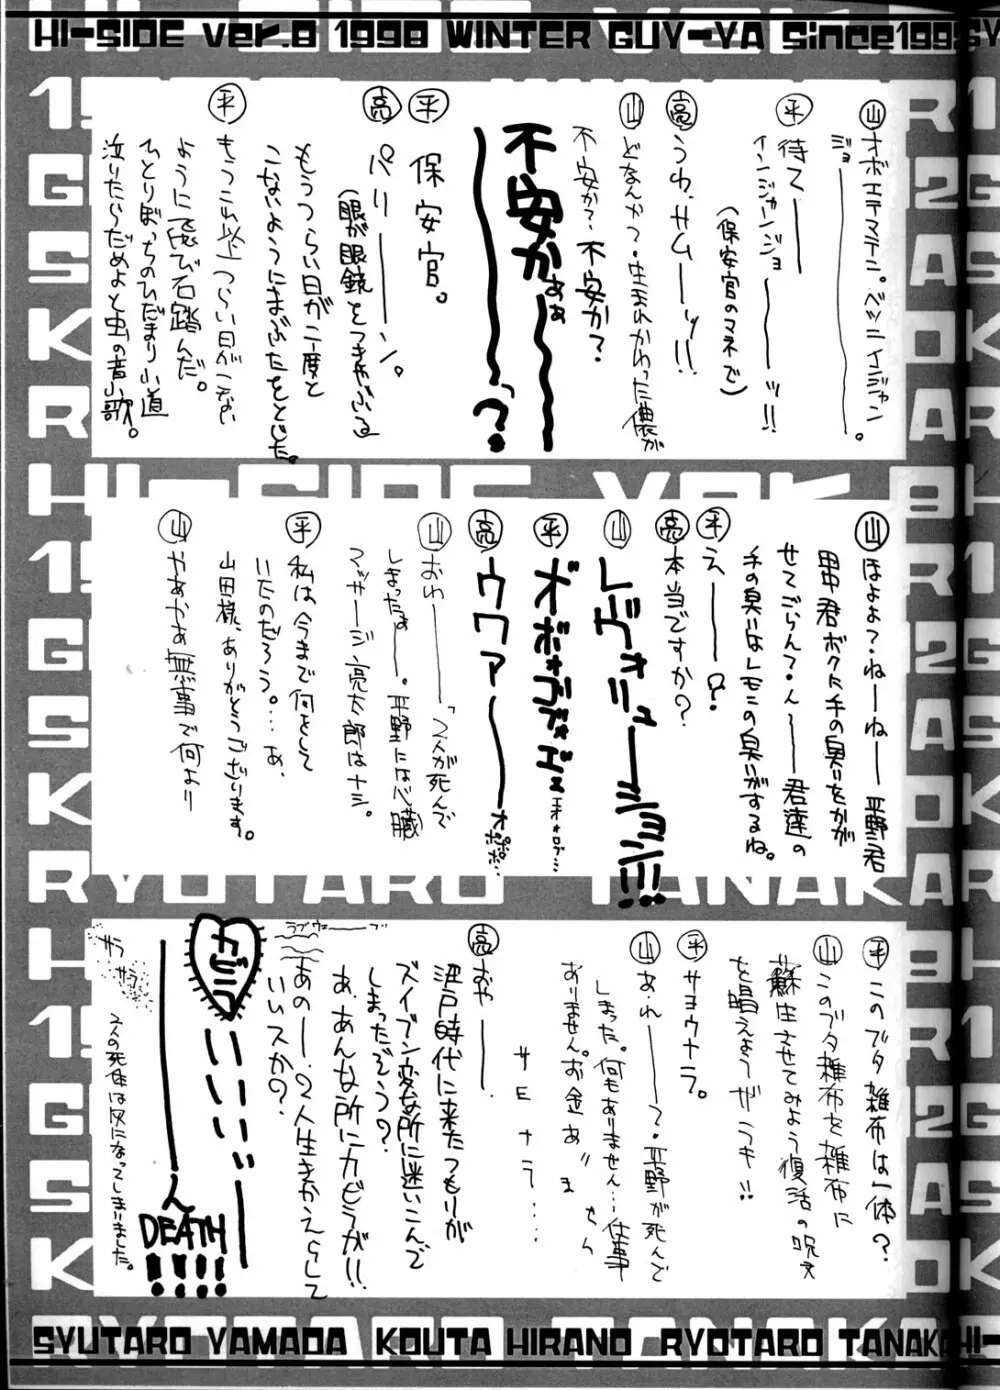 HI-SIDE ver.8 1998 WINTER GUY-YA Since199
山 オボエテマテニ。ベツニイイジャン
ジョ———。
平 待て——
インジャーンジョ——ッ!!
(保安官のマネで)
亮 うわ、サム——ッ!!
山 どなんか?・生まれかわった儂が
不安か?不安か?
不安かぁぁ〜〜っ?
平 保安官。
亮 パリ———ン。
(眼が眼鏡をつきやぶる)
もうつらい日が二度と
こないようにまぶたをとじた。
平 もうこれ以上つらい日がこない
ように飛び石踏んだ。
ひとりぼっちのひだまり小道
泣いたらだめよと虫の音小歌。
山 ほよよ?・ねーねー 平野君
田中君ボクに手の臭いをかが
せてごらん?・ん——君達の
手の臭いはレモンの臭いがするね。
平 え——?
亮 本当ですか?
山 レヴォリューーション!!!
平 オボォゲヴォゲェ
亮 ウワァ———オポポポポ…
山 おわ——「2人が死んで
しまったぁ——。平野には心臓
マッサージ、亮太郎はナシ。
平 私は今まで何をして
いたのだろう。…あ、
山田様、ありがとうございます。
山 やあやあ無事で何より
平 このブタ雑布は一体?
山 このブタ雑布を雑布に
蘇生させてみよう復活の呪文
を唱えようがラキ!!
平 サヨウナラ。
山 あ、れ——?・平野が死んで
しまった。何もありません…仕事
ありません。お金あ"ませら
サ E ナ ラ …
亮 おや——.
江戸時代に来たつもりが
ズイブン変な所に迷いこんで
しまったぞう?・
あ、あんな所にカビラが!!
あの——.2人生きかえらして
いいスか?・
ラブウェーーブ
———ん
DEATH
!!!!
サラ
サラ
2人の死体は灰になってしまいました。
SYUTARO YAMADA KOUTA HIRANO RYOTARO TANAKA HI-